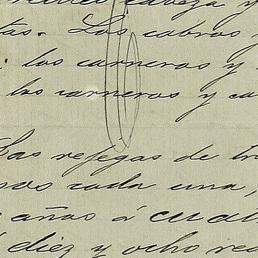 cabeza y
tas. Las cabras y
: los carneros y
los carneros y ca
Las refegas de tr
nos cada una,
años á cuat
diez y ocho rea